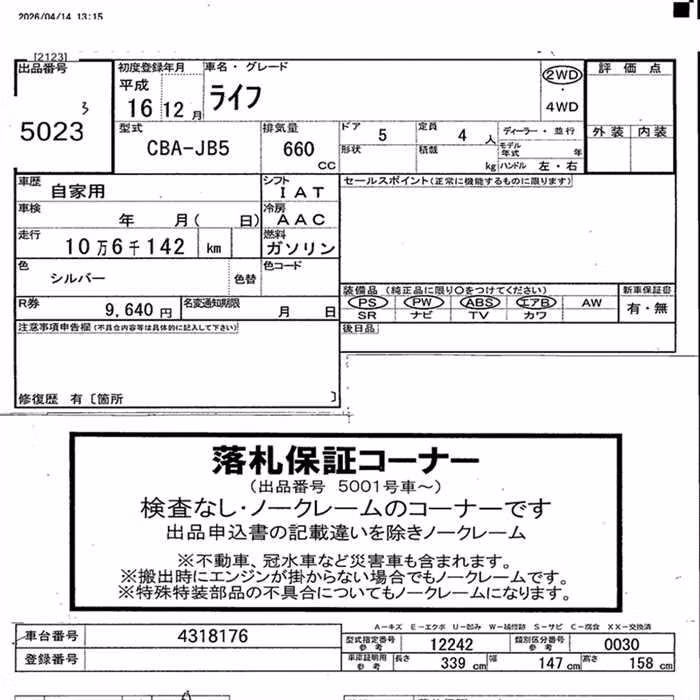 2026/04/14 13:15
[2123]
出品番号
3
5023
初度登録年月
平成
16 12 月
車名・グレード
ライフ
2WD
・
4WD
評価点
外装 内装
型式
CBA-JB5
排気量
660
CC
ドア 5
定員 4 人
ディーラー・並行
形状
積載 kg
モデル年式 年
ハンドル 左・右
車歴
自家用
シフト
IAT
セールスポイント(正常に機能するものに限ります)
車検
年 月( 日)
冷房
AAC
走行
10万6千142 km
燃料
ガソリン
色
シルバー
色替
色コード
装備品 (純正品に限り○をつけてください)
新車保証書
PS PW ABS エアB AW
SR ナビ TV カワ
有・無
R券
9,640 円
名変通知期限
月 日
後日品
注意事項申告欄(不具合内容等は具体的に記入して下さい)
修復歴 有〔箇所 〕
落札保証コーナー
(出品番号 5001号車~)
検査なし・ノークレームのコーナーです
出品申込書の記載違いを除きノークレーム
※不動車、冠水車など災害車も含まれます。
※搬出時にエンジンが掛からない場合でもノークレームです。
※特殊特装部品の不具合についてもノークレームになります。
A-キズ E-エクボ U-凹み W-補修跡 S-サビ C-腐食 XX-交換済
車台番号
4318176
型式指定番号
参考
12242
類別区分番号
参考
0030
登録番号
車庫証明用
参考
長さ 339 cm 幅 147 cm 高さ 158 cm